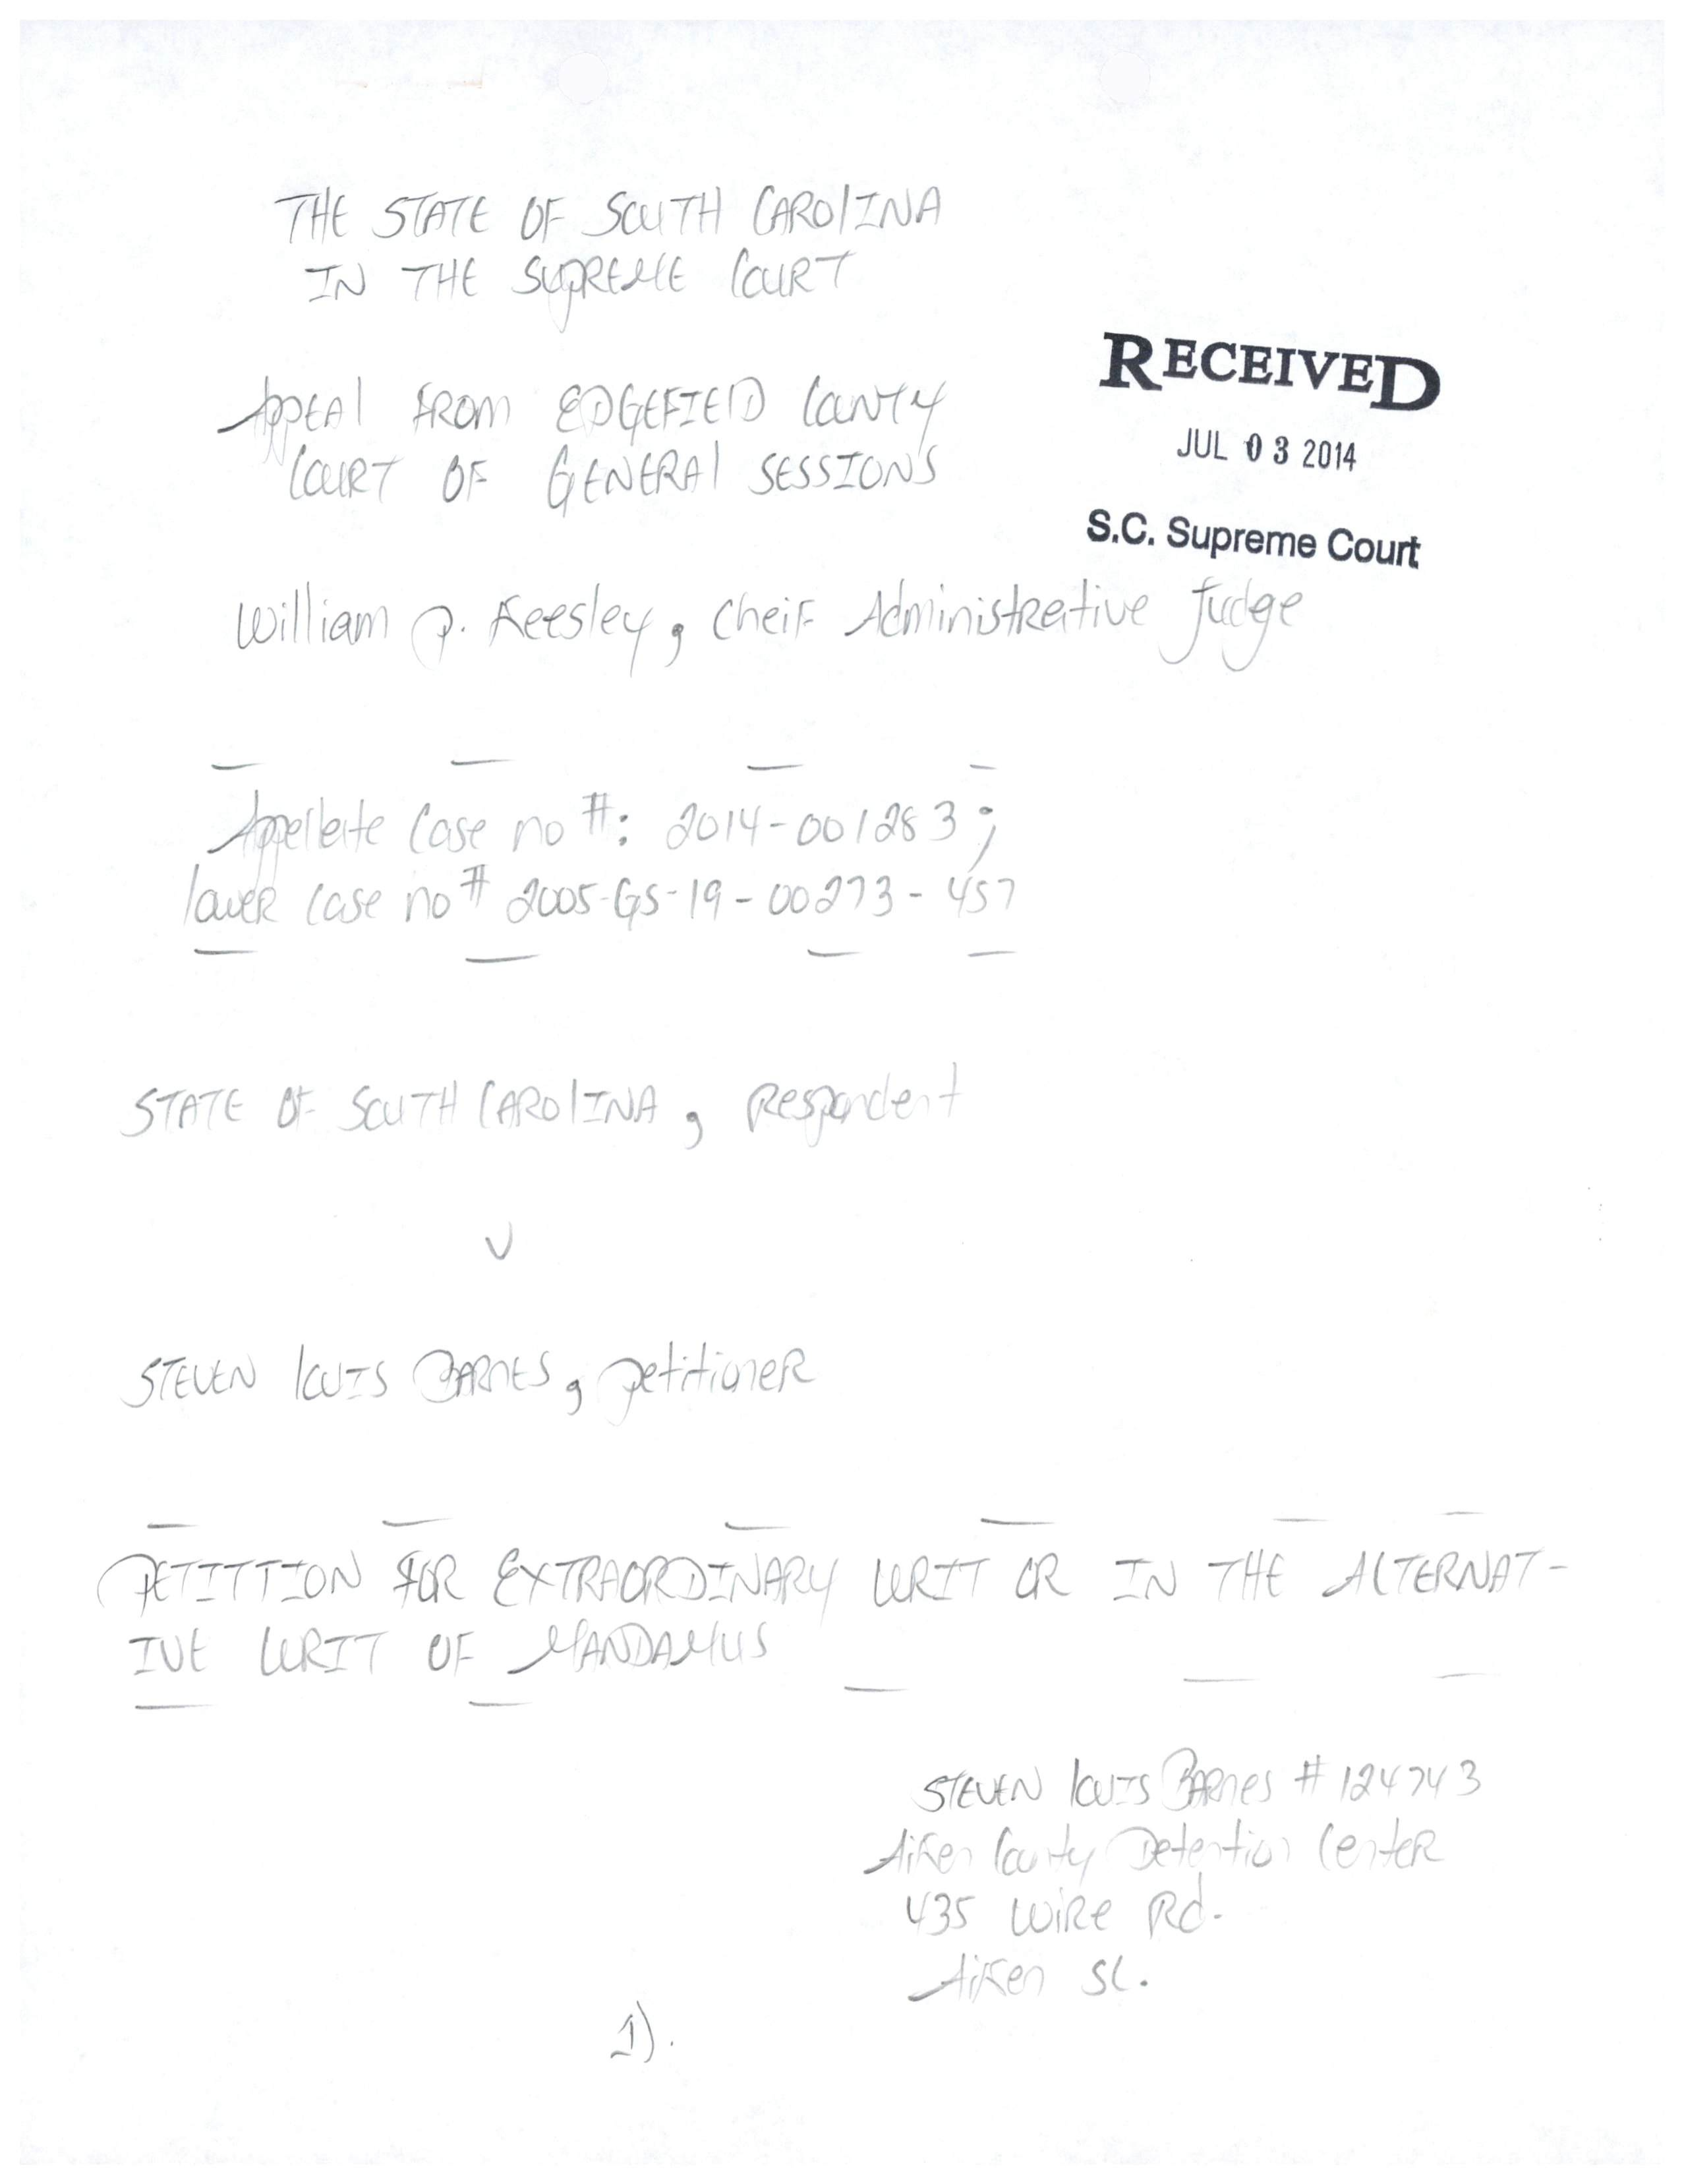 THE STATE OF SOUTH CAROLINA
IN THE SUPREME COURT
RECEIVED
JUL 03 2014
S.C. Supreme Court
Appeal FROM EDGEFIELD COUNTY
COURT OF GENERAL SESSIONS
William P. Keesley, Cheif Administrative Judge
Appellate Case no #: 2014-001283;
lower case no # 2005-GS-19-00273-457
STATE OF SOUTH CAROLINA, Respondent
V
STEVEN LOUIS BARNES, petitioner
PETITION FOR EXTRAORDINARY WRIT OR IN THE ALTERNAT-
IVE WRIT OF MANDAMUS
STEVEN LOUIS BARNES # 124743
Aiken County Detention Center
435 Wire Rd.
Aiken SC.
1).